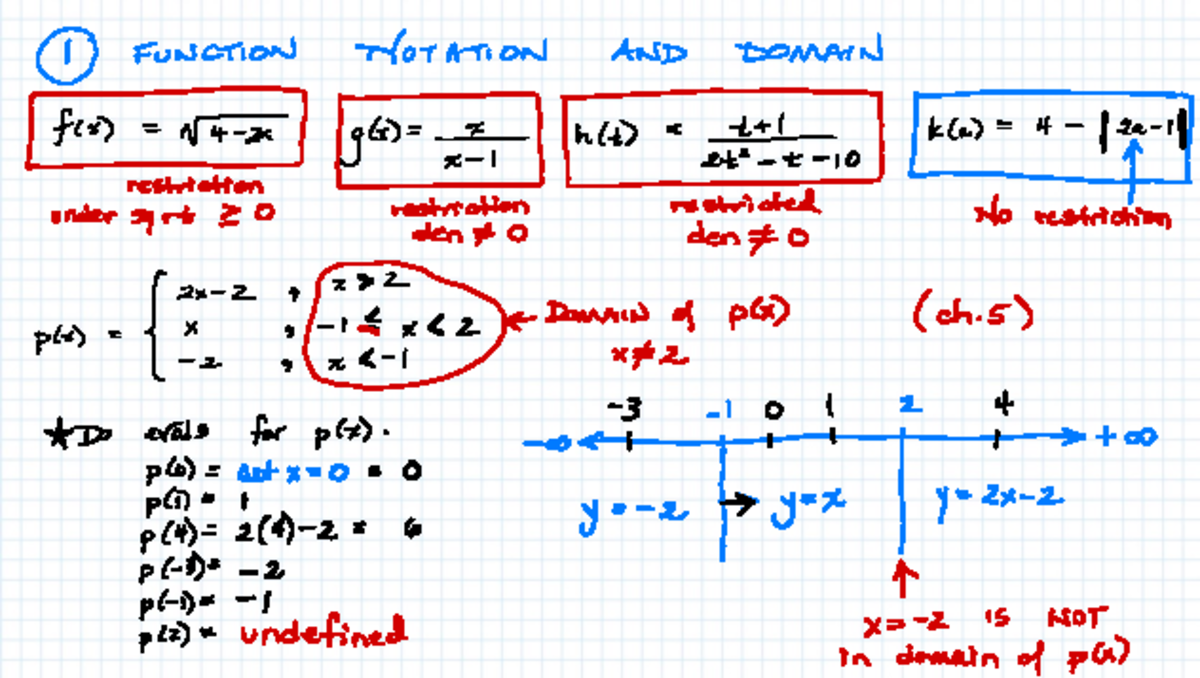 ① FUNCTION NOTATION AND DOMAIN
f(x) = √4-2x
g(x) = x / x-1
h(t) = t+1 / 2t² - t - 10
k(a) = 4 - |2a-1|
restriction
under sqrt ≥ 0
restriction
den ≠ 0
restricted
den ≠ 0
No restriction
p(x) = { 2x-2 , x > 2
x , -1 ≤ x < 2
-2 , x < -1
← Domain of p(x)
x ≠ 2
(ch.5)
★ Do evals for p(x).
p(0) = set x=0 = 0
p(1) = 1
p(4) = 2(4)-2 = 6
p(-3) = -2
p(-1) = -1
p(2) = undefined
-3 -1 0 1 2 4
-∞ +∞
y = -2 → y = x y = 2x-2
x = -2 is NOT
in domain of p(x)